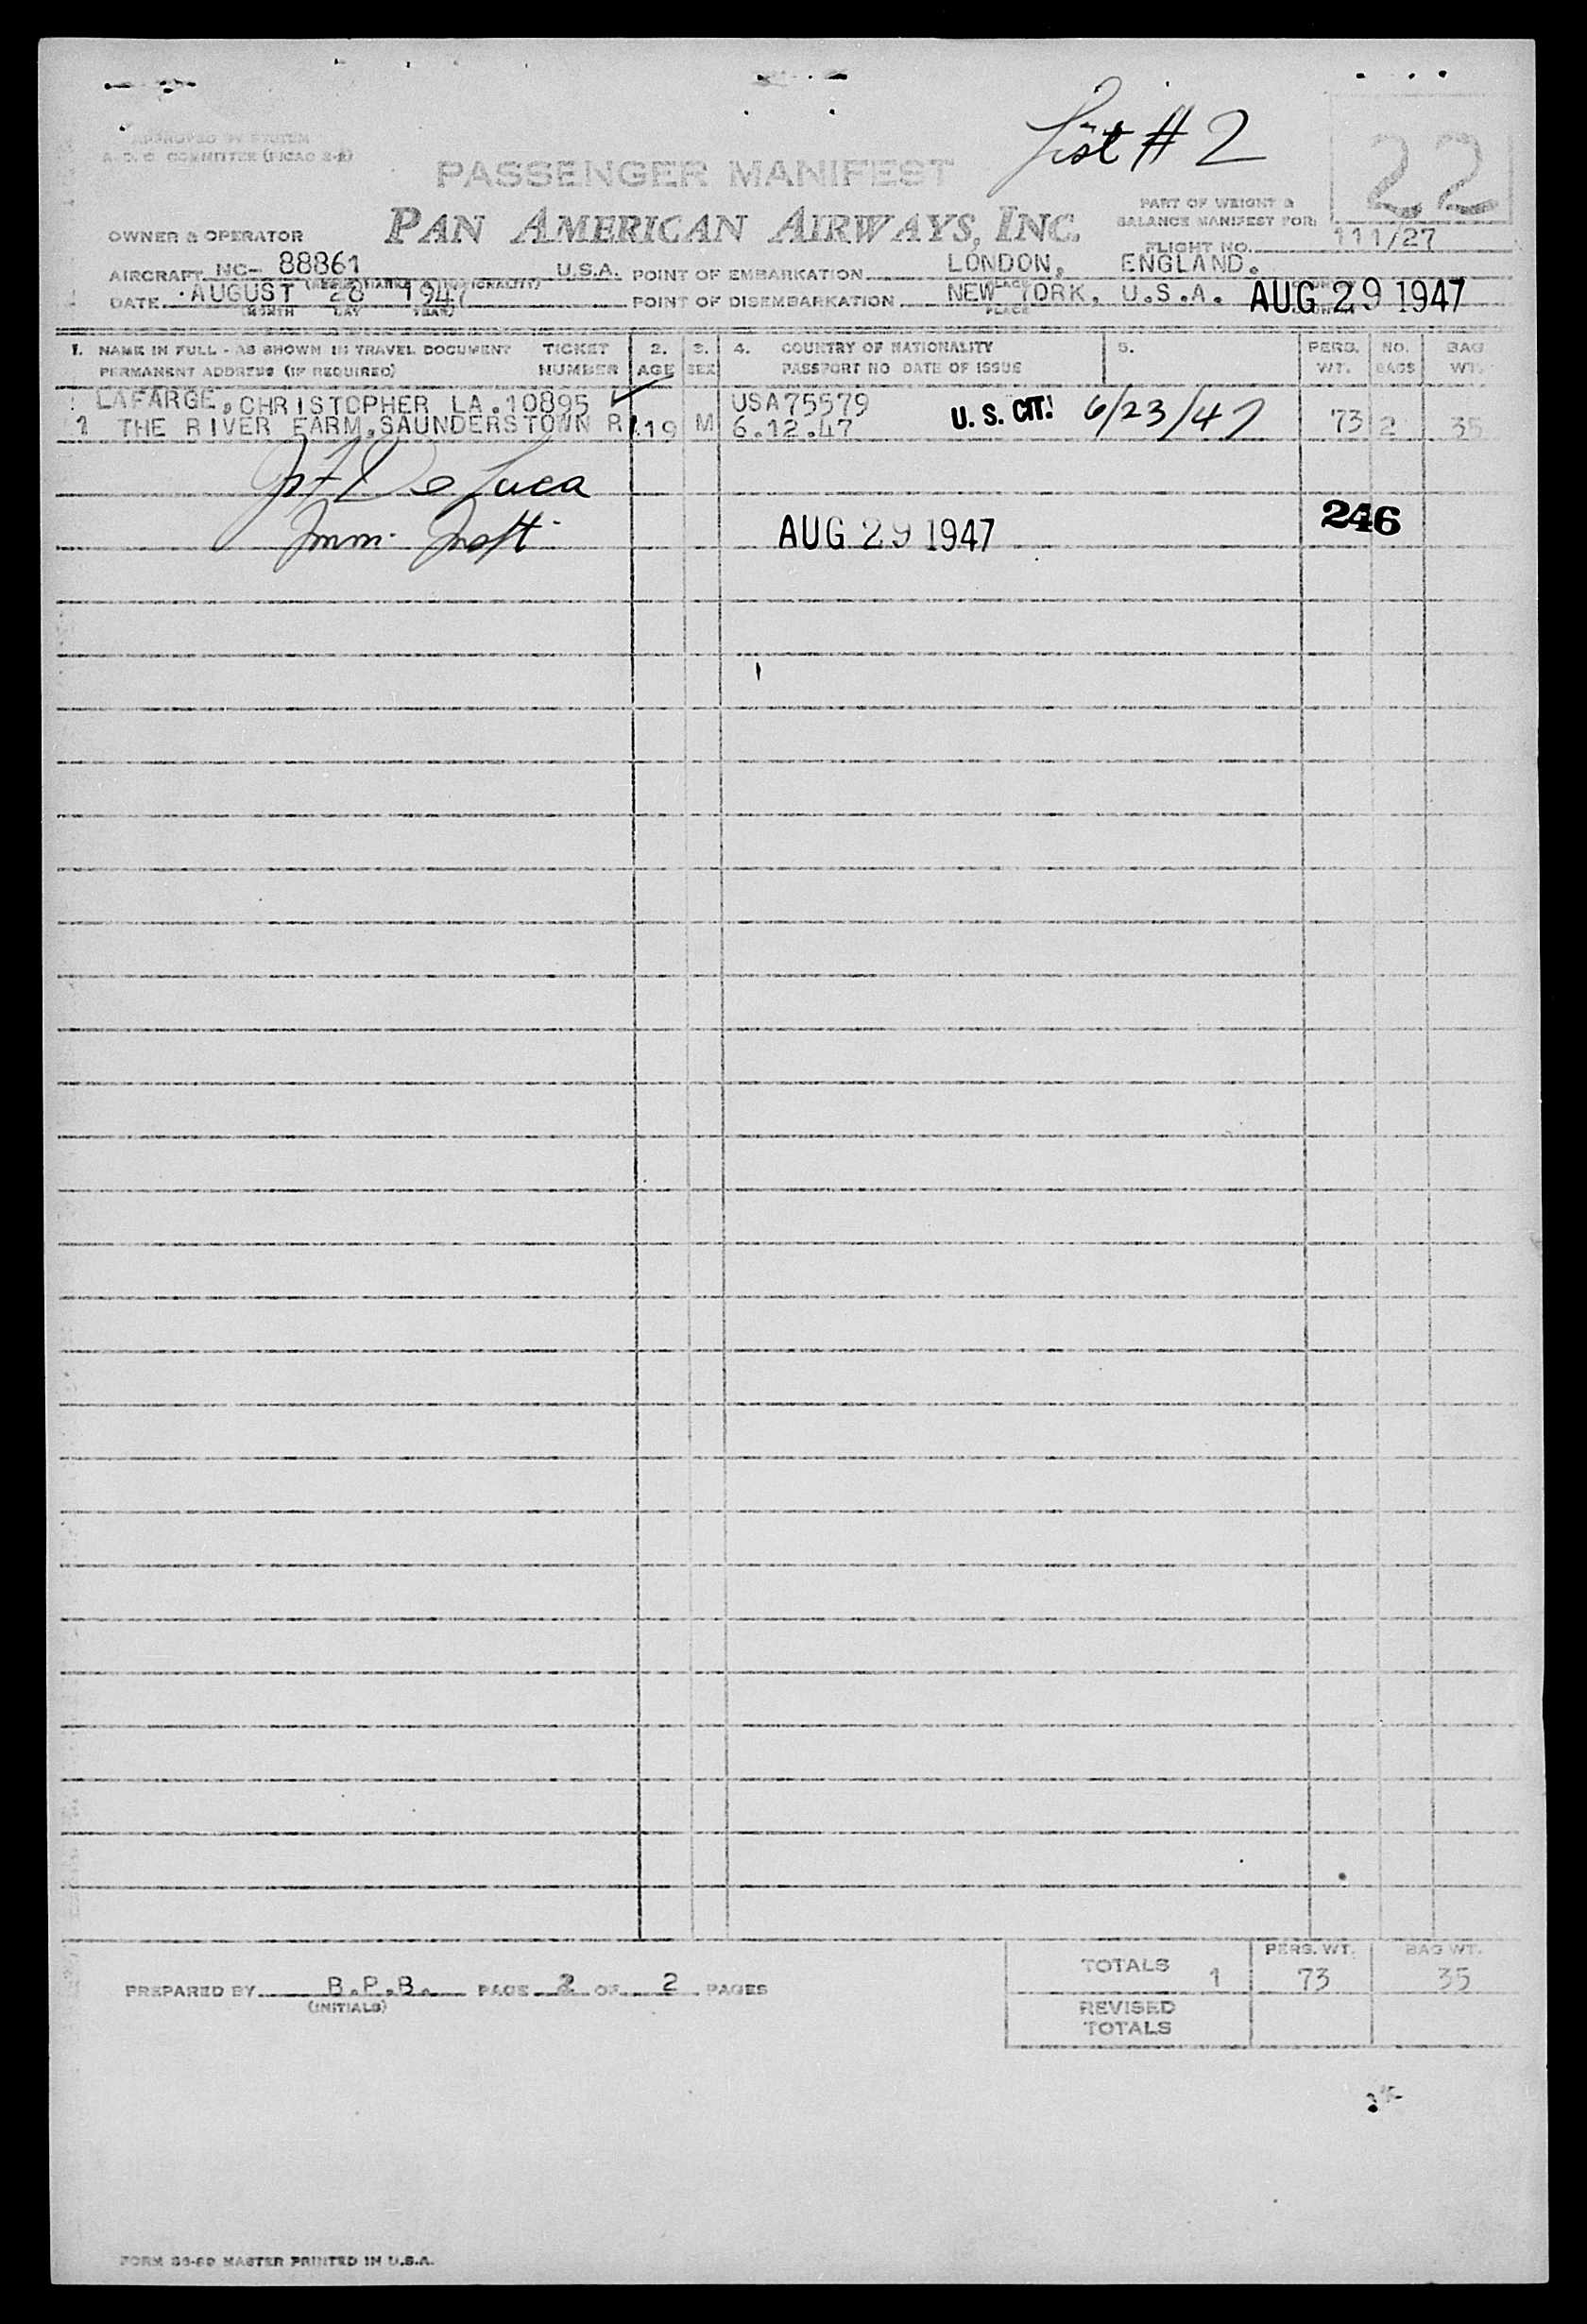 List # 2
22
APPROVED BY SYSTEM
A. D. C. COMMITTEE (PICAO 2-2)
PASSENGER MANIFEST
PAN AMERICAN AIRWAYS, INC.
PART OF WEIGHT &
BALANCE MANIFEST FOR:
OWNER & OPERATOR
FLIGHT NO. 111/27
AIRCRAFT NC- 88861 U.S.A. POINT OF EMBARKATION LONDON, ENGLAND.
DATE AUGUST 28 1947 POINT OF DISEMBARKATION NEW YORK, U.S.A. AUG 29 1947
MONTH DAY YEAR PLACE
1. NAME IN FULL - AS SHOWN IN TRAVEL DOCUMENT TICKET 2. 3. 4. COUNTRY OF NATIONALITY 5. PERS. NO. BAG
PERMANENT ADDRESS (IF REQUIRED) NUMBER AGE SEX PASSPORT NO DATE OF ISSUE WT. BAGS WT.
LAFARGE, CHRISTOPHER LA.10895 USA75579
1 THE RIVER FARM, SAUNDERSTOWN R 19 M 6.12.47 U. S. CIT. 6/23/47 73 2 35
De Luca
Imm. Insp. AUG 29 1947 246
TOTALS 1 PERS. WT. 73 BAG WT. 35
PREPARED BY B.P.B. PAGE 2 OF 2 PAGES
(INITIALS)
REVISED
TOTALS
MASTER PRINTED IN U.S.A.